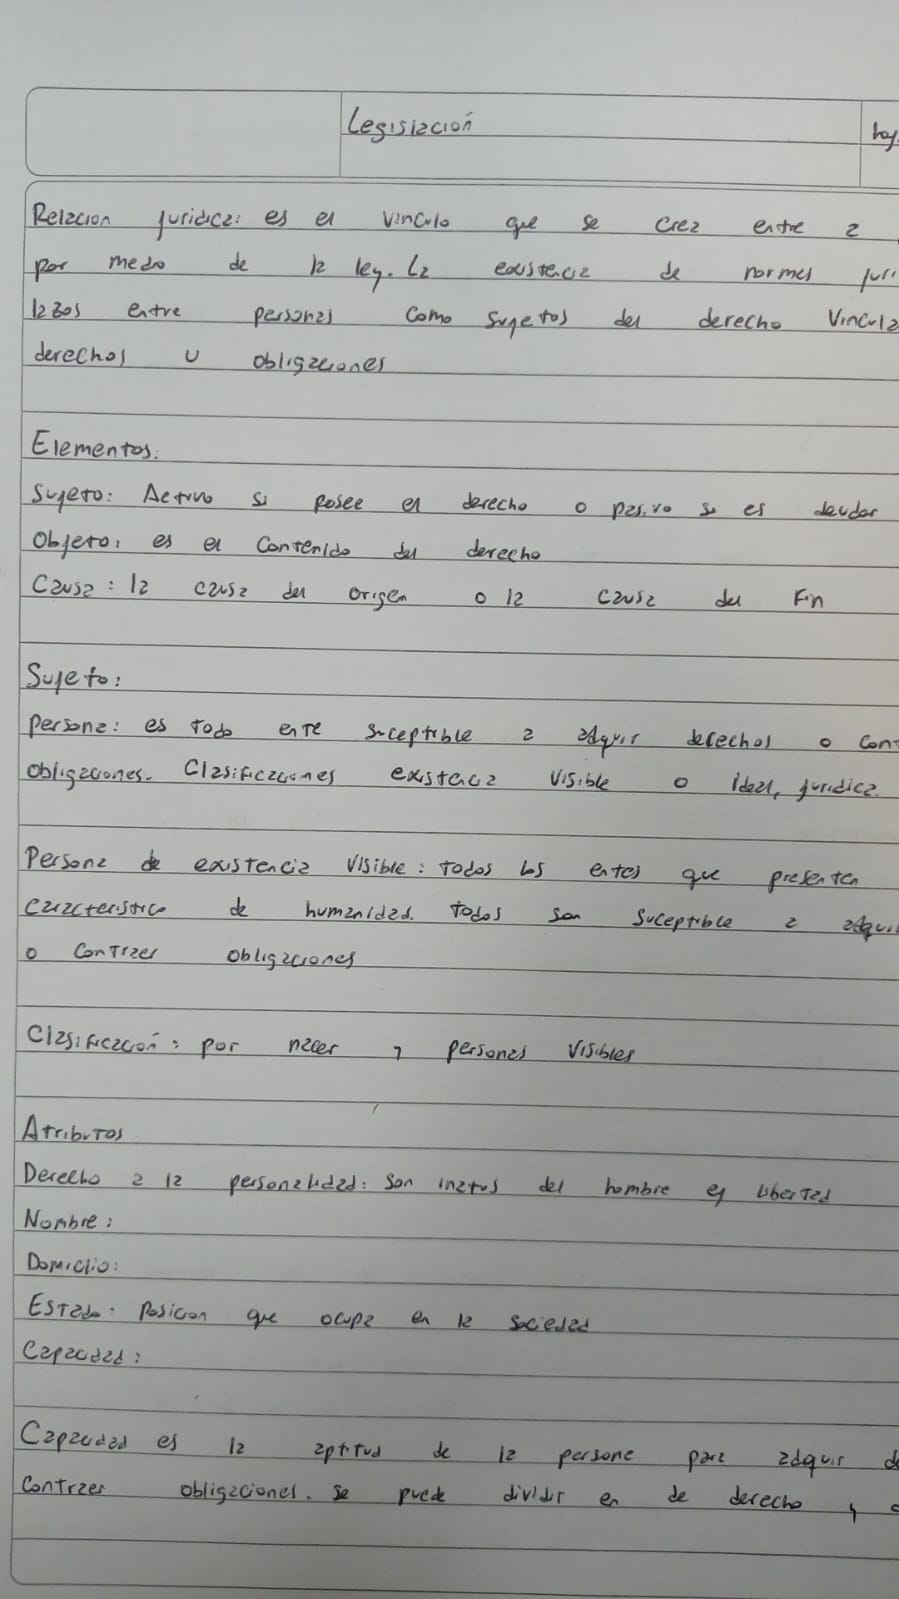 Legislación
hoj
Relacion juridica: es el vinculo que se crea entre 2
por medio de la ley. La existencia de normas juri
lazos entre personas como sujetos del derecho vincula
derechos u obligaciones
Elementos:
Sujeto: Activo si posee el derecho o pasivo si es deudor
Objeto: es el contenido del derecho
Causa: la causa del origen o la causa del fin
Sujeto:
persona: es todo ente suceptible a adquir derechos o cont
obligaciones. Clasificaciones existencia visible o ideal, juridica.
Persona de existencia visible: todos los entes que presenten
caracteristico de humanidad. todos son suceptible a adqui
o contraer obligaciones
Clasificación: por nacer y personas visibles
Atributos
Derecho a la personalidad: son inatos del hombre ej libertad
Nombre:
Domiclio:
Estado: posicion que ocupa en la sociedad
Capacidad:
Capacidad es la aptitud de la persona para adquir d
contraer obligaciones. se puede dividir en de derecho y